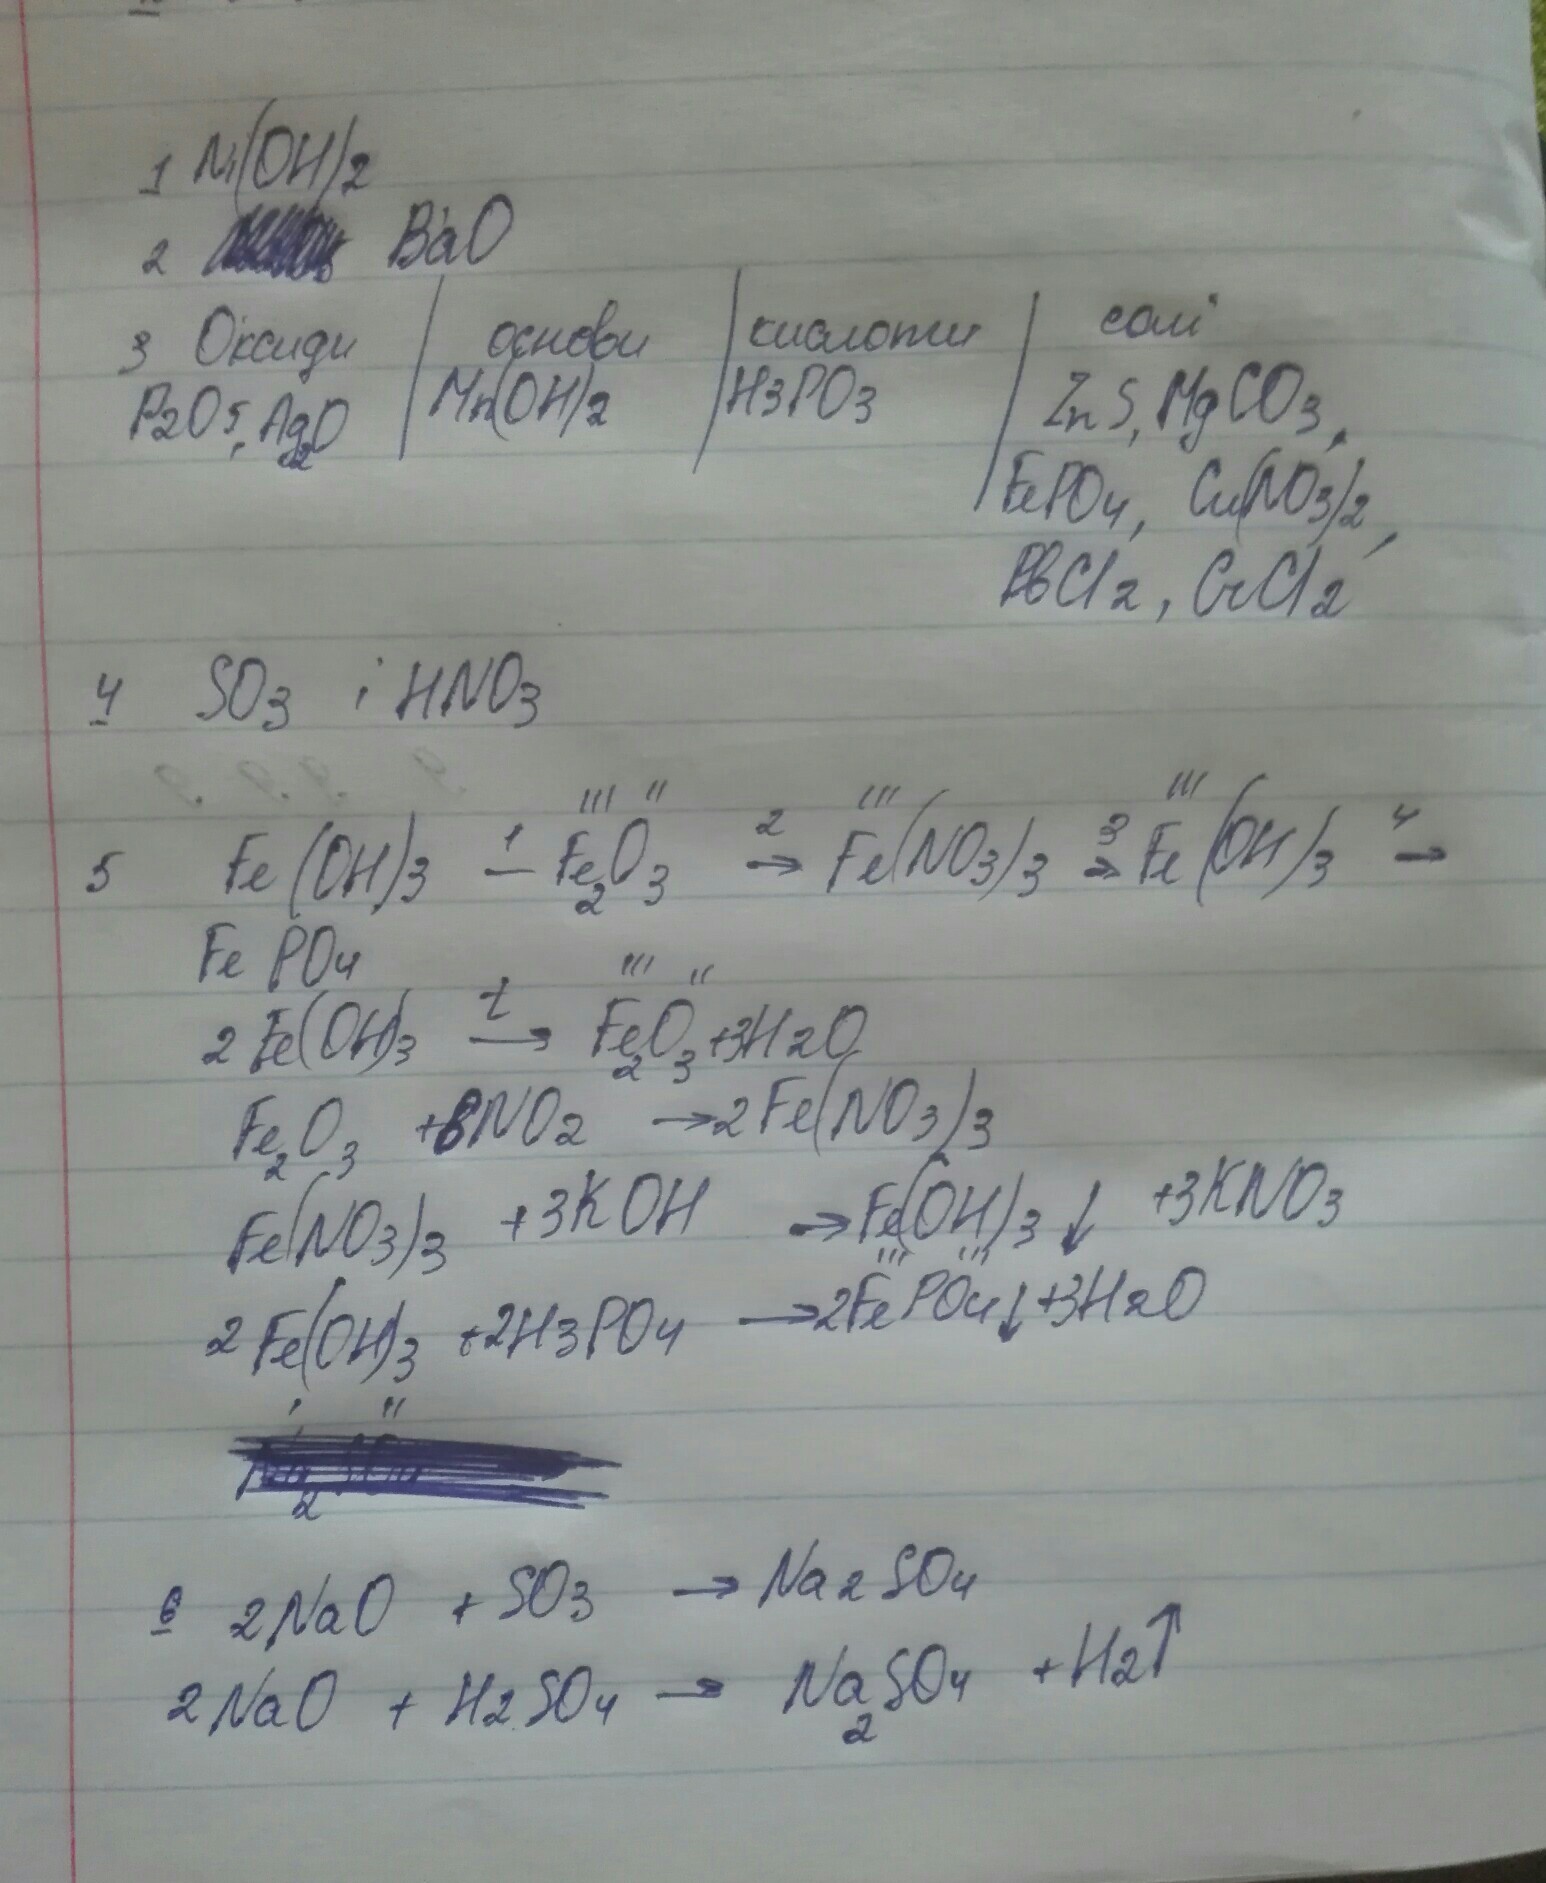 1 Ni(OH)2
2 BaO
3 Оксиди | основи | кислоти | солі
P2O5, Ag2O | Mn(OH)2 | H3PO3 | ZnS, MgCO3,
FePO4, Cu(NO3)2,
PbCl2, CrCl2
4 SO3 i HNO3
5 Fe(OH)3 1— Fe2O3 2→ Fe(NO3)3 3→ Fe(OH)3 4→
FePO4
2Fe(OH)3 t→ Fe2O3 + 3H2O
Fe2O3 + 6NO2 → 2Fe(NO3)3
Fe(NO3)3 + 3KOH → Fe(OH)3↓ + 3KNO3
2Fe(OH)3 + 2H3PO4 → 2FePO4↓ + 3H2O
6 2NaO + SO3 → Na2SO4
2NaO + H2SO4 → Na2SO4 + H2↑